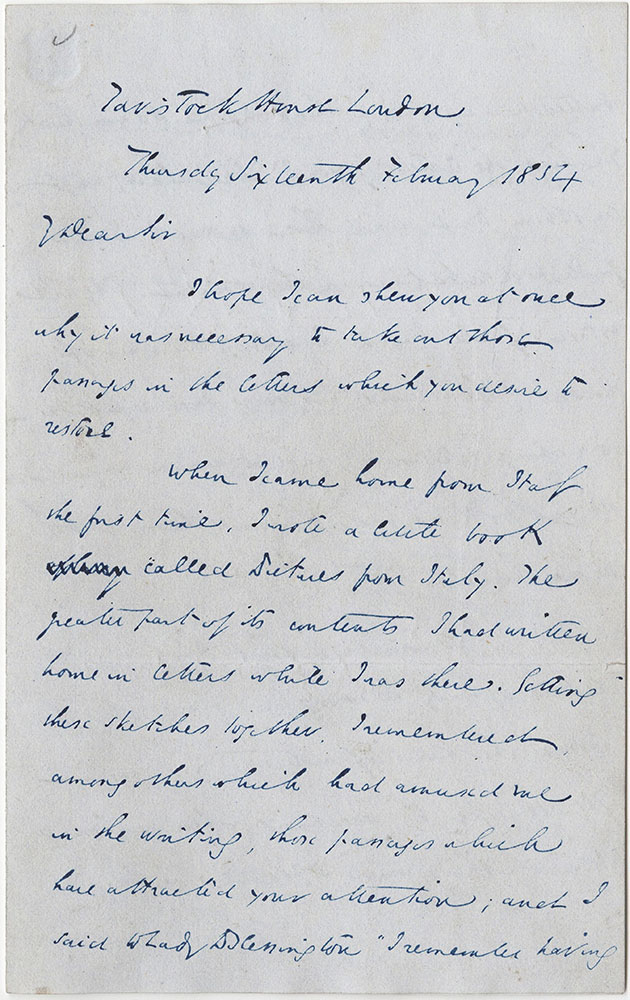 Tavistock House London
Thursday Sixteenth February 1854
My Dear Sir
I hope I can shew you at once
why it was necessary to take out those
passages in the letters which you desire to
restore.
When I came home from Italy
the first time, I wrote a little book
called Pictures from Italy. The
greater part of its contents I had written
home in letters while I was there. Getting
these sketches together, I remembered
among others which had amused me
in the writing, those passages which
have attracted your attention; and I
said to Lady Blessington "I remember having